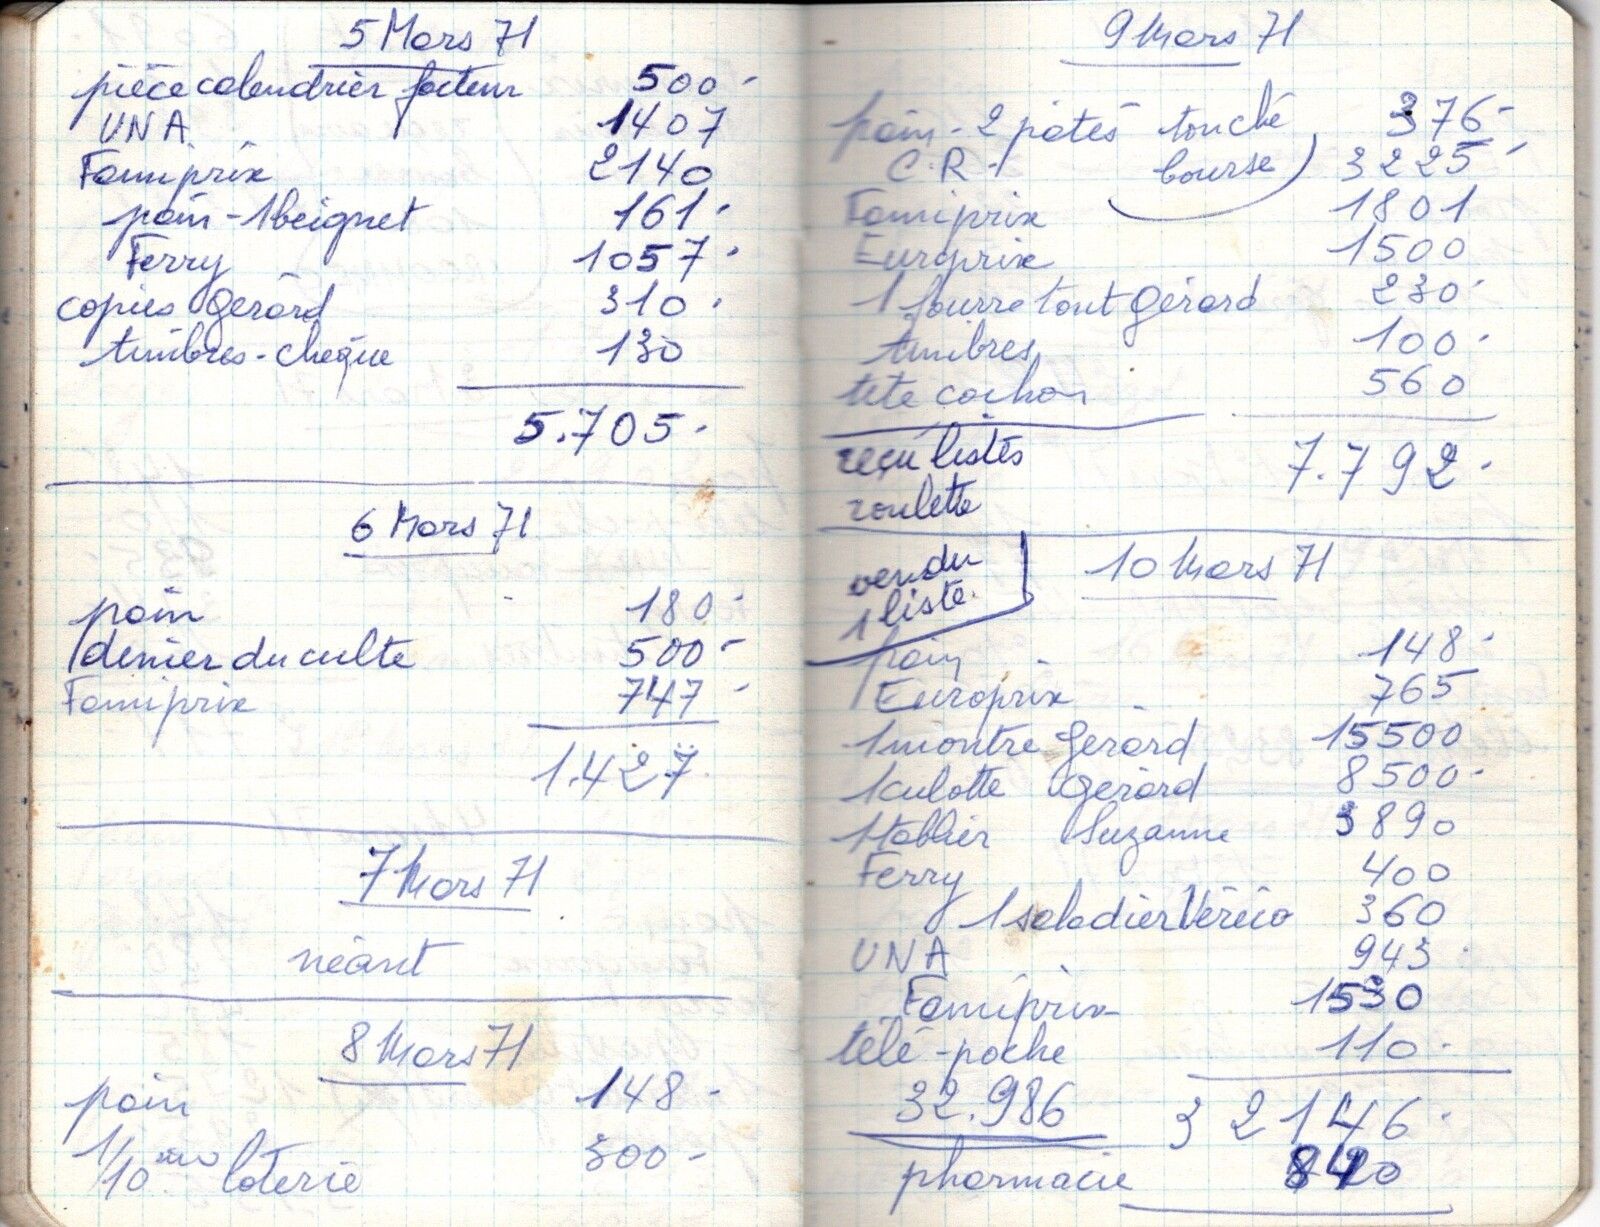 5 Mars 71
pièce calendrier facteur 500-
UNA 1407
Famiprix 2140
pain - 1 beignet 161.
Ferry 1057.
copies Gérard 310.
timbres-chèque 130
5.705.
6 Mars 71
pain 180-
denier du culte 500-
Famiprix 747-
1.427
7 Mars 71
néant
8 Mars 71
pain 148-
1/10 loterie 300-
9 Mars 71
pain - 2 patés touché 376-
C.R. bourse) 3225-
Famiprix 1801
Europrix 1500
1 fourre tout Gérard 230.
timbres 100.
tete cochon 560
reçu listes 7.792.
roulette
vendu
1 liste.
10 Mars 71
pain 148-
Europrix 765
1 montre Gérard 15500
1 culotte Gérard 8500-
1 tablier Suzanne 3890
Ferry 400
1 saladier Véréco 360
UNA 943.
Famiprix 1530
télé-poche 110.
32.986 32146.
pharmacie 840